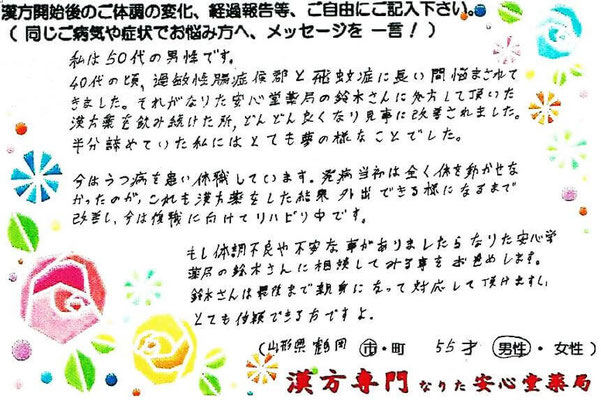 漢方開始後のご体調の変化、経過報告等、ご自由にご記入下さい。
（ 同じご病気や症状でお悩み方へ、メッセージを 一言！）
私は50代の男性です。
40代の頃、過敏性腸症候郡と飛蚊症に長い間悩まされて
きました。それがなりた安心堂薬局の鈴木さんに処方して頂いた
漢方薬を飲み続けた所、どんどん良くなり見事に改善されました。
半分諦めていた私にはとても夢の様なことでした。
今はうつ病を患い休職しています。発病当初は全く体を動かせな
かったのが、これも漢方薬をした結果 外出できる様になるまで
改善し、今は復職に向けてリハビリ中です。
もし体調不良や不安な事がありましたらなりた安心堂
薬局の鈴木さんに相談してみる事をお勧めします。
鈴木さんは最後まで親身になって対応して頂けますし、
とても信頼できる方ですよ。
（山形県 鶴岡 市・町 55才 男性・女性 ）
漢方専門 なりた 安心堂薬局